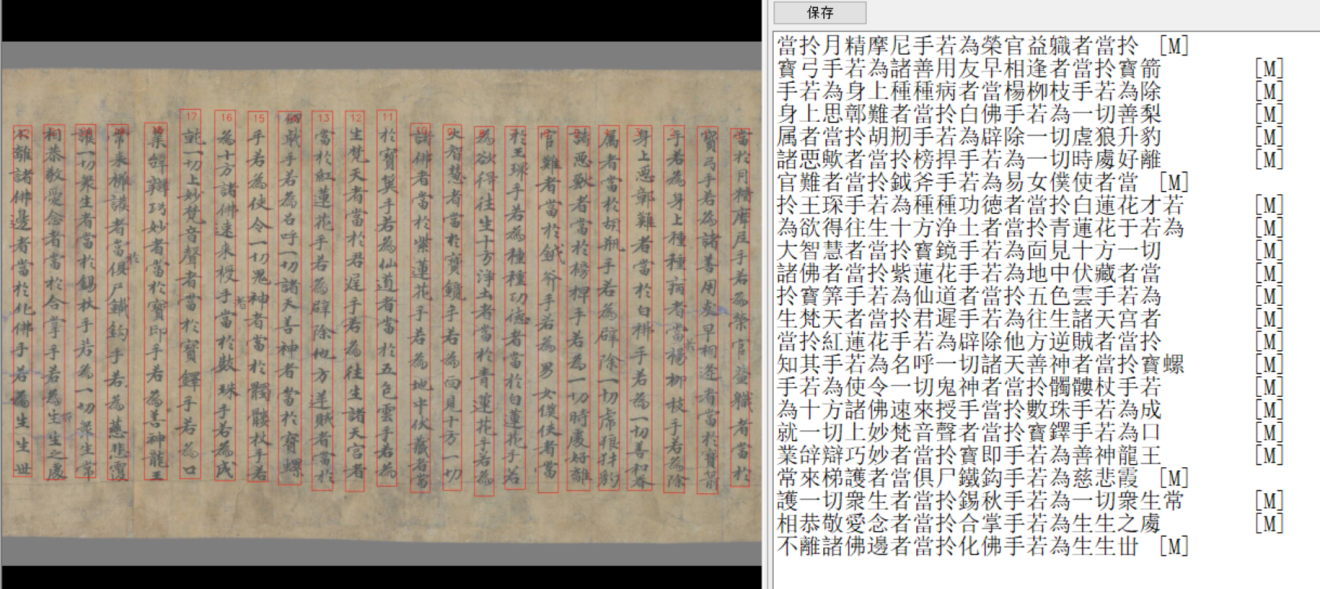 當於月精摩尼手若為榮官益軄者當於
寶弓手若為諸善用友早相逢者當於寶箭
手若為身上種種病者當楊柳枝手若為除
身上惡鄣難者當於白拂手若為一切善和眷
属者當於胡瓶手若為辟除一切虎狼犲豹
諸惡獸者當於榜牌手若為一切時處好離
官難者當於鉞斧手若為男女僕使者當
於玉環手若為種種功徳者當於白蓮花手若
為欲得往生十方浄土者當於青蓮花手若為
大智慧者當於寶鏡手若為面見十方一切
諸佛者當於紫蓮花手若為地中伏藏者當
11
於寶篋手若為仙道者當於五色雲手若為
12
生梵天者當於君遲手若為往生諸天宮者
13
當於紅蓮花手若為辟除他方逆賊者當於
戟手若為名呼一切諸天善神者當於寶螺
15
手若為使令一切鬼神者當於髑髏杖手若
16
為十方諸佛速來授手當於數珠手若為成
17
就一切上妙梵音聲者當於寶鐸手若為口
業辝辯巧妙者當於寶印手若為善神龍王
常來擁護者當俱尸鐵鈎手若為慈悲覆
護一切衆生者當於錫杖手若為一切衆生常
相恭敬愛念者當於合掌手若為生生之處
不離諸佛邊者當於化佛手若為生生世
保存
當拎月精摩尼手若為榮官益軄者當拎 [M]
寶弓手若為諸善用友早相逢者當拎寶箭 [M]
手若為身上種種病者當楊栁枝手若為除 [M]
身上思鄣難者當拎白佛手若為一切善梨 [M]
属者當拎胡刱手若為辟除一切虗狼升豹 [M]
諸惡歟者當拎榜捍手若為一切時處好離 [M]
官難者當拎鉞斧手若為易女僕使者當 [M]
拎王琛手若為種種功徳者當拎白蓮花才若 [M]
為欲得往生十方浄土者當拎青蓮花于若為 [M]
大智慧者當拎寶鏡手若為面見十方一切 [M]
諸佛者當拎紫蓮花手若為地中伏藏者當 [M]
拎寶筭手若為仙道者當拎五色雲手若為 [M]
生梵天者當拎君遲手若為往生諸天宮者 [M]
當拎紅蓮花手若為辟除他方逆賊者當拎 [M]
知其手若為名呼一切諸天善神者當拎寶螺 [M]
手若為使令一切鬼神者當拎髑髏杖手若 [M]
為十方諸佛速來授手當拎數珠手若為成 [M]
就一切上妙梵音聲者當拎寶鐸手若為口 [M]
業辝辯巧妙者當拎寶即手若為善神龍王 [M]
常來梯護者當俱尸鐵鈎手若為慈悲霞 [M]
護一切衆生者當拎錫秋手若為一切衆生常 [M]
相恭敬愛念者當拎合掌手若為生生之處 [M]
不離諸佛邊者當拎化佛手若為生生丗 [M]